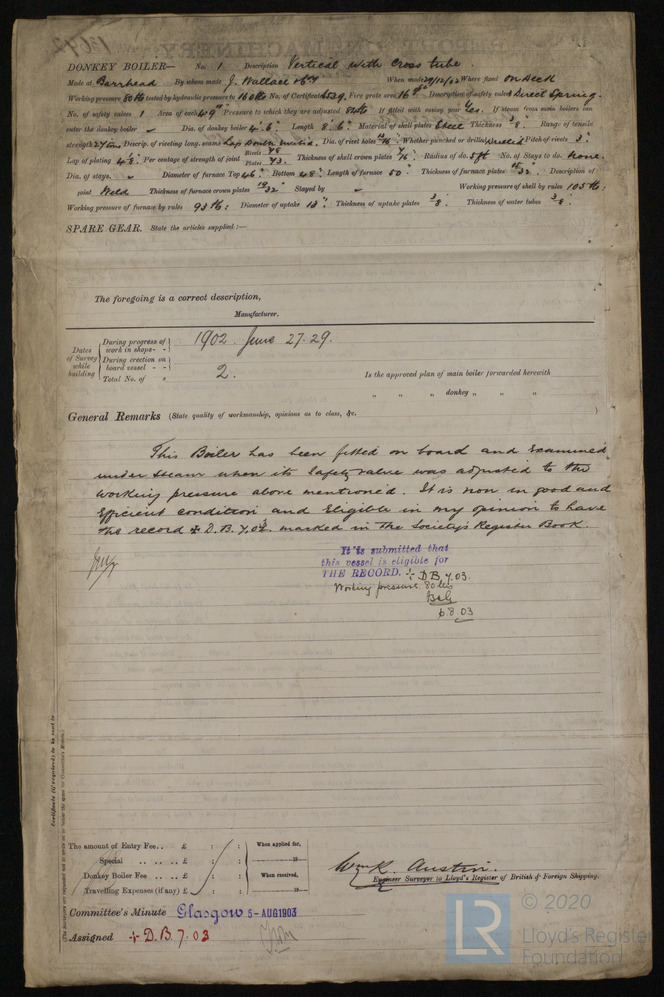 DONKEY BOILER— No. 1 Description Vertical with Cross tube.
Made at Barrhead By whom made J. Wallace When made Where fixed On Deck
Working pressure 80 lbs tested by hydraulic pressure to 160 lbs No. of Certificate Fire grate area 16 Description of safety valves Direct Spring.
No. of safety valves 1 Area of each Pressure to which they are adjusted 82 lbs If fitted with easing gear Yes. If steam from main boilers can
enter the donkey boiler Dia. of donkey boiler 4'.6" Length 8'.6" Material of shell plates Steel Thickness 3/8" Range of tensile
strength 27 tons Descrip. of riveting long. seams Lap Double Dia. of rivet holes Whether punched or drilled Pitch of rivets 3"
Lap of plating Per centage of strength of joint Rivets 78 Plates 73. Thickness of shell crown plates 7/16" Radius of do. 5 ft No. of Stays to do. None.
Dia. of stays. Diameter of furnace Top 46" Bottom 48" Length of furnace 50" Thickness of furnace plates 15/32 Description of
joint Weld Thickness of furnace crown plates Stayed by Working pressure of shell by rules 105 lbs:
Working pressure of furnace by rules 93 lbs: Diameter of uptake 13" Thickness of uptake plates 3/8" Thickness of water tubes 3/8"
SPARE GEAR. State the articles supplied:—
The foregoing is a correct description,
Manufacturer.
Dates of Survey while building
During progress of work in shops - - 1902 June 27. 29.
During erection on board vessel - -
Total No. of 2.
Is the approved plan of main boiler forwarded herewith
" " " donkey " " "
General Remarks (State quality of workmanship, opinions as to class, &c.
This Boiler has been fitted on board and Examined
under steam when its Safety valve was adjusted to the
working pressure above mentioned. It is now in good and
Efficient condition and Eligible in my opinion to have
the record + D.B. 7.03 marked in the Society's Register Book.
It is submitted that
this vessel is eligible for
THE RECORD. + D.B. 7.03.
Working pressure 80 lbs
6.8.03
Certificate (if required) to be sent to
The amount of Entry Fee.. £ : : When applied for,
Special .. .. .. £ : : 19
Donkey Boiler Fee .. .. £ : : When received,
Travelling Expenses (if any) £ : : 19
Wm K. Austin.
Engineer Surveyor to Lloyd's Register of British & Foreign Shipping.
Committee's Minute Glasgow 5-AUG1903
Assigned + D.B. 7.03
LR © 2020
Lloyd's Register
Foundation